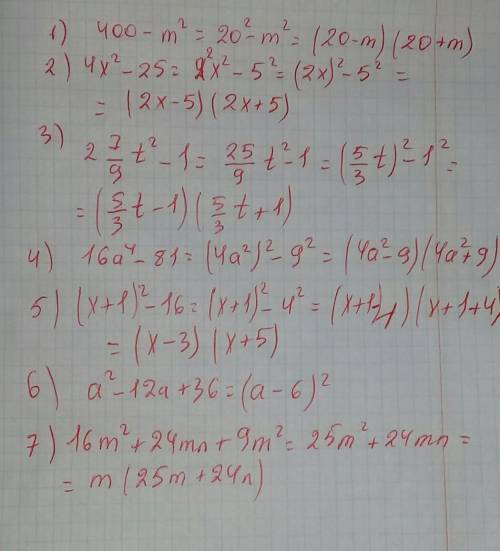 1) 400 - m² = 20² - m² = (20-m)(20+m)
2) 4x² - 25 = 2²x² - 5² = (2x)² - 5² =
= (2x-5)(2x+5)
3) 2 7/9 t² - 1 = 25/9 t² - 1 = (5/3 t)² - 1² =
= (5/3 t - 1)(5/3 t + 1)
4) 16a⁴ - 81 = (4a²)² - 9² = (4a² - 9)(4a² + 9)
5) (x+1)² - 16 = (x+1)² - 4² = (x+1-4)(x+1+4)
= (x-3)(x+5)
6) a² - 12a + 36 = (a-6)²
7) 16m² + 24mn + 9m² = 25m² + 24mn =
= m(25m + 24n)